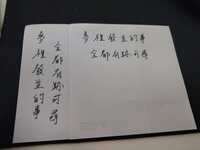 夢裡發生的事
全都有跡可尋
夢裡發生的事
全都有跡可尋